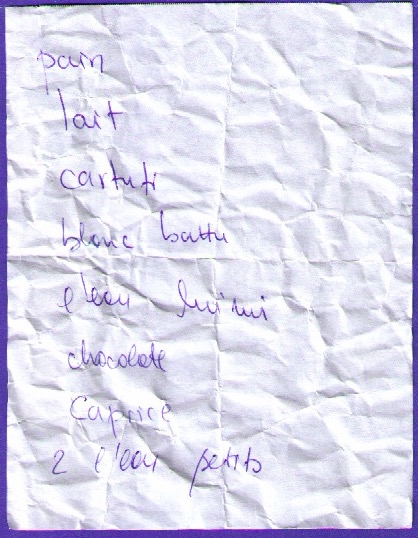 pain
lait
cartufi
blanc battu
l'eau
chocolate
Caprice
2 l'eau petits